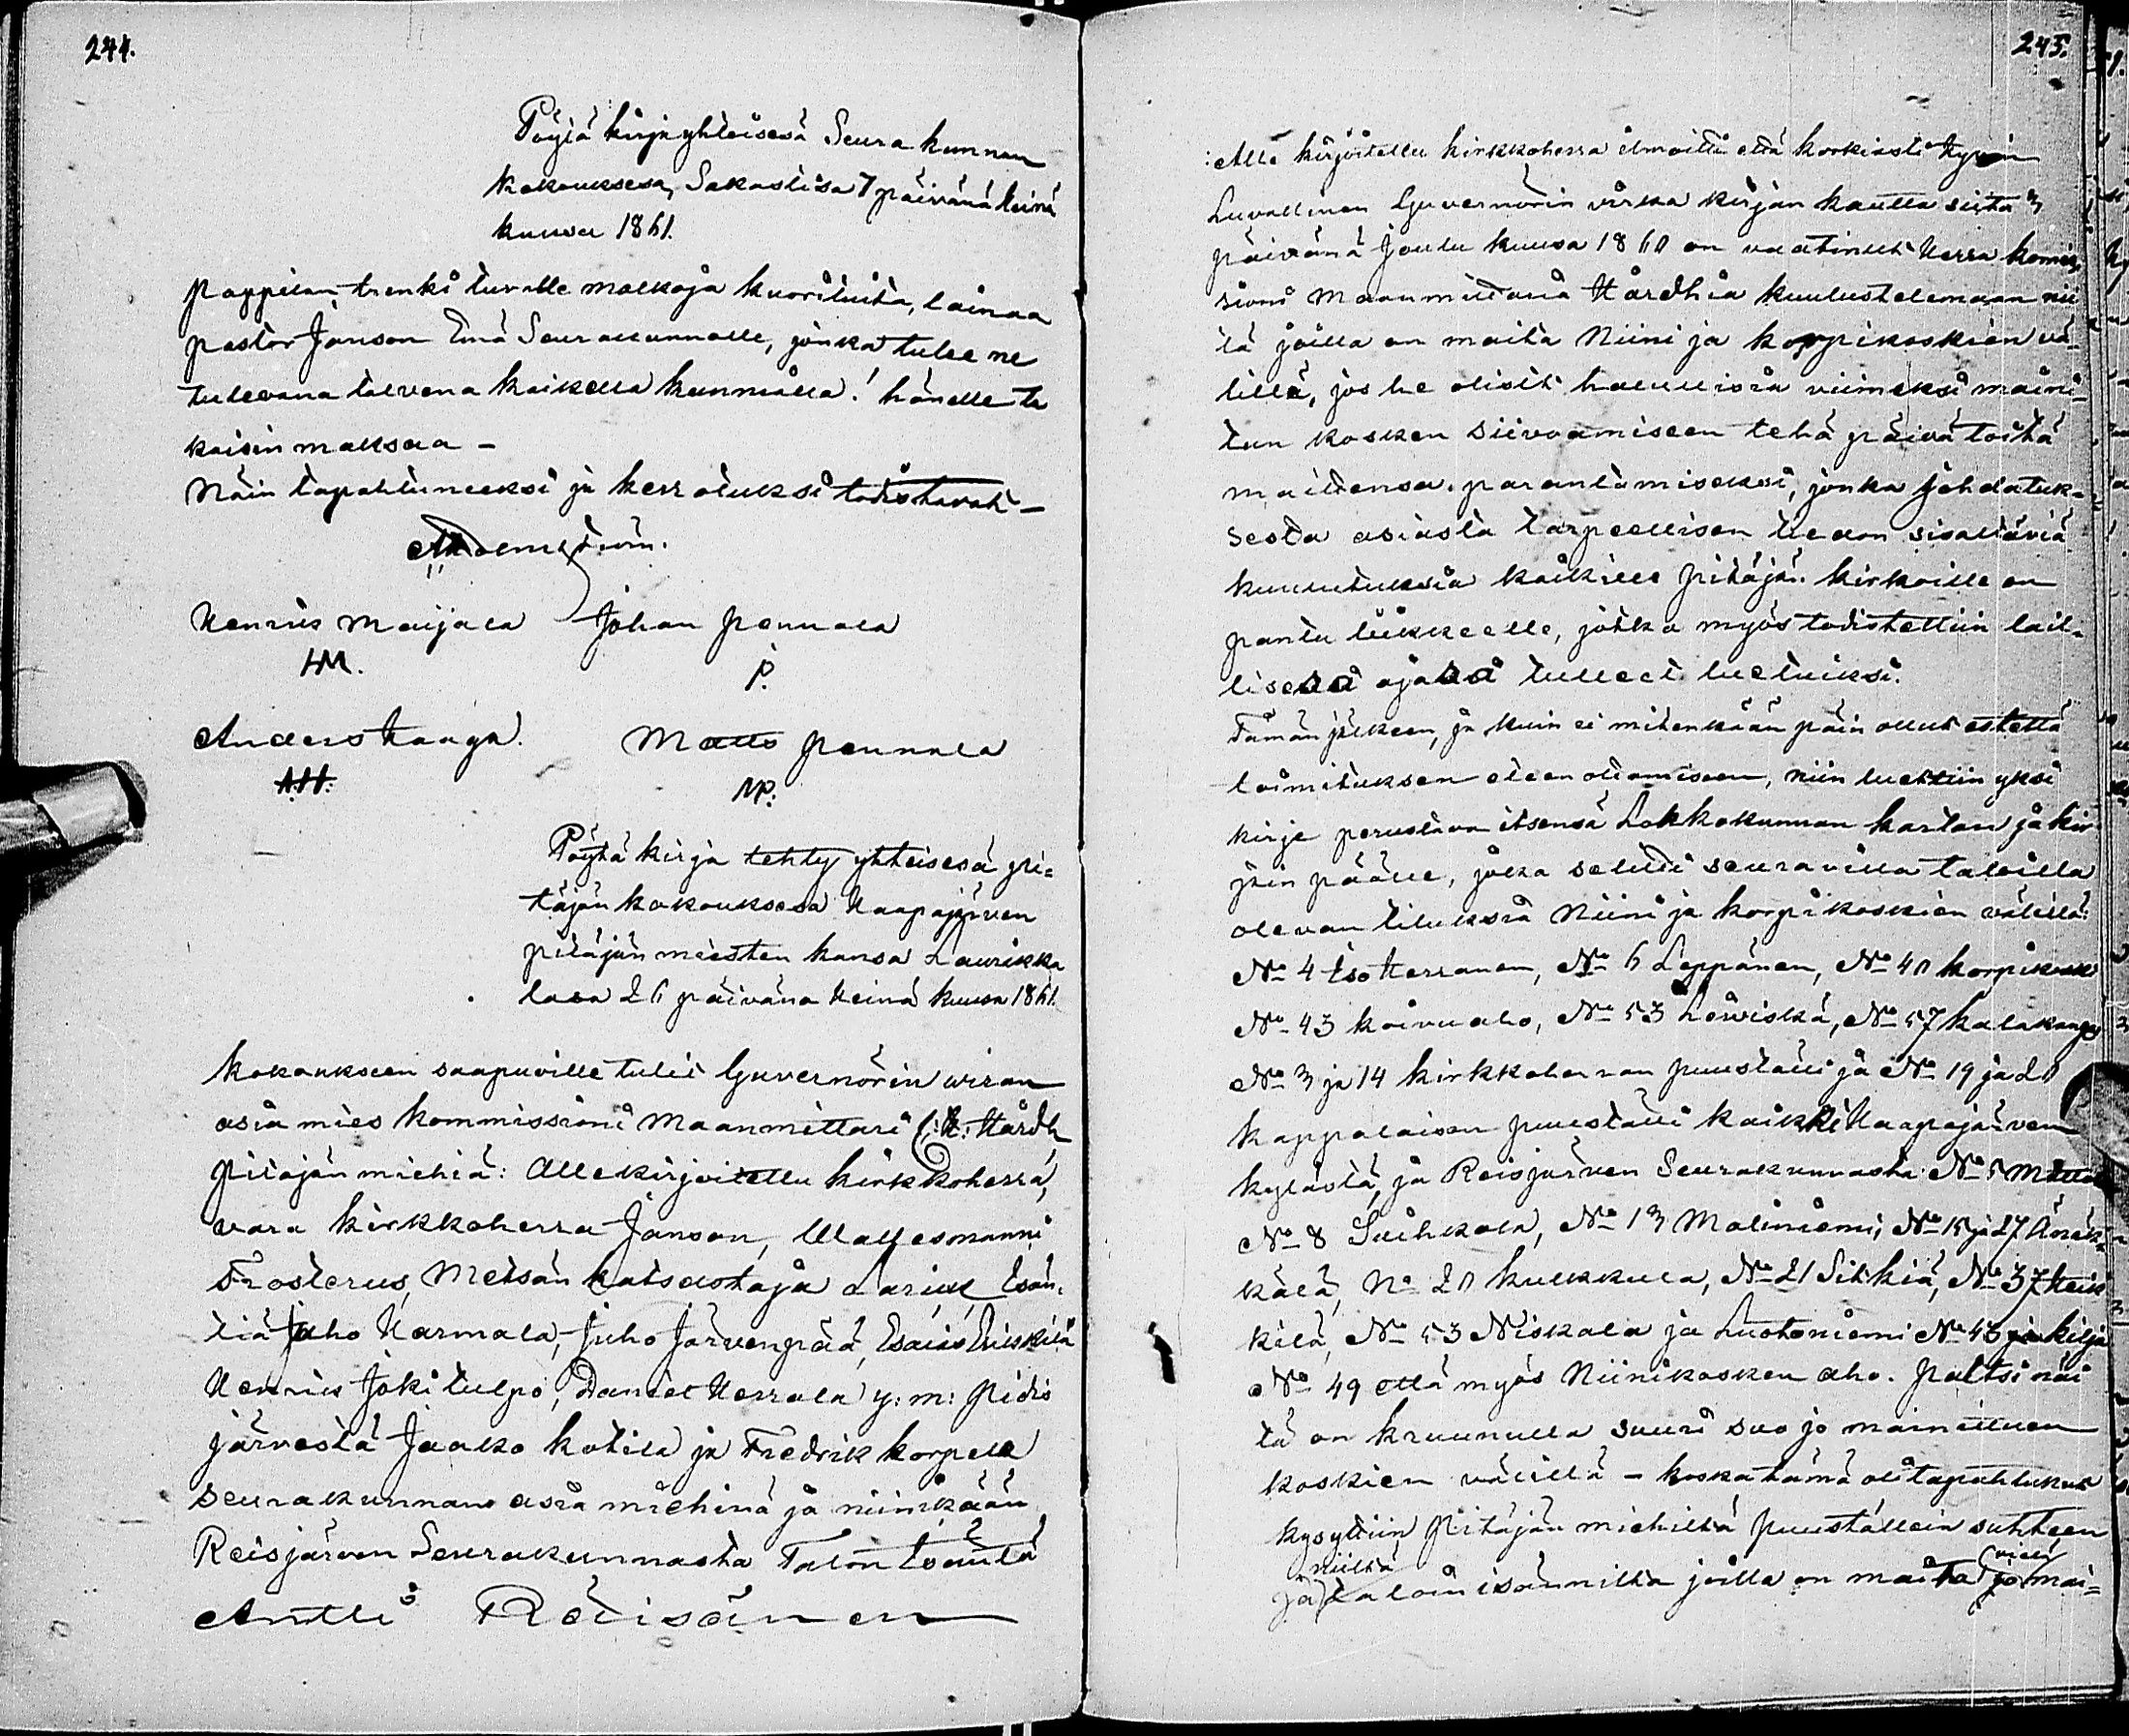 244.
Pöytä kirja yhteisesä Seura kunnan
kokouksesa, Sakastisa 7 päivänä heinä
kuusa 1861.
Pappilan trenki tuvalle malkoja kuorituita, lainaa
pastor Janson Emä Seurakunnalle, jonka tulee ne
tulevana talvena kaikella kunnialla! hänelle ta
kaisin maksaa –
Näin tapahtuneeksi ja kerrotuksi todistavat –
Henrik Maijala Johan Pennala
HM. P.
Anders Haaga. Matts Pennala
A.H. MP.
Pöytä kirja tehty yhteisesä pi=
täjän kokouksesa Haapajärven
pitäjän miesten kansa Laurikka
lasa 26 päivänä Heinä kuusa 1861.
Kokoukseen saapuville tuli Guvernörin wiran
asia mies kommissioni Maanmittari Hårdh
Pitäjän miehiä: Allekirjoitettu kirkkoherra,
vara kirkkoherra Janson, Wallesmanni
Frosterus, Metsän katsastaja Isän=
tiä Juho Karmala, Juho Järvenpää, Esaias
Henrik Jokitulpo, Daniel Herrala y: m: Pidis
järvestä Jaako Kotila ja Fredrik Korpela
Seurakunnan asia miehinä ja niinikään
Reisjärven Seurakunnasta Talon Isäntä
Antti Räisänen
245.
Alle kirjoitettu kirkkoherra ilmoitti että korkiasti hyvin
Luvallinen Guvernörin virka kirjan kautta siitä 3
päivänä Joulu kuusa 1860 on vaatinut Herra komis
sioni Maanmittaria Hårdhia kuulustelemaan nii
tä joilla on maita Niini ja Korpikoskien vä=
lillä, jos he olisit halullisia viimeksi maini=
tun kosken siivoamiseen tehä päivä töitä
maittensa parantamiseksi, jonka johdatuk=
sesta asiasta tarpeellisen tiedon sisältäviä
kuulutuksia kaikille pitäjän kirkoille on
pantu liikkeelle, jotka myös todistettiin lail=
lisesä ajasa tulleet luetuiksi.
Tämän jälkeen, ja kuin ei mitenkään päin ollut estettä
toimituksen eteen ottamiseen, niin luettiin yksi
kirje perustava itsensä Lohkokunnan kartan ja kir
jain päälle, joka selitti seuravilla taloilla
olevan tiluksia Niini ja Korpikoskien välillä:
No 4 Iso Herranen, No 6 Leppänen, No 40 Korpikoski
No 43 Koivuaho, No 53 Lewiskä, No 57 Kalakangas
No 3 ja 14 Kirkkoherran puustalli ja No 19 ja 20
Kappalaisen puustalli kaikki Haapajärven
kylästä, ja Reisjärven Seurakunnasta No 5 Mattila
No 8 Suihkola, No 13 Maliniemi, No 15 ja 27
kälä, No 20 Kukkula, No 21 Sitkiä, No 37 Heik
kilä, No 53 Niskala ja Luotoniemi No 43 ja Kilja
No 49 että myös Niinikosken aho. Paitsi näi
tä on kruunulla suuri suo jo mainittuen
koskien välillä – koska tämä oli tapahtunut
kysyttiin Pitäjän miehiltä puuställein suhteen
ja niiltä talon isännilta joilla on maita vielä jo mai=